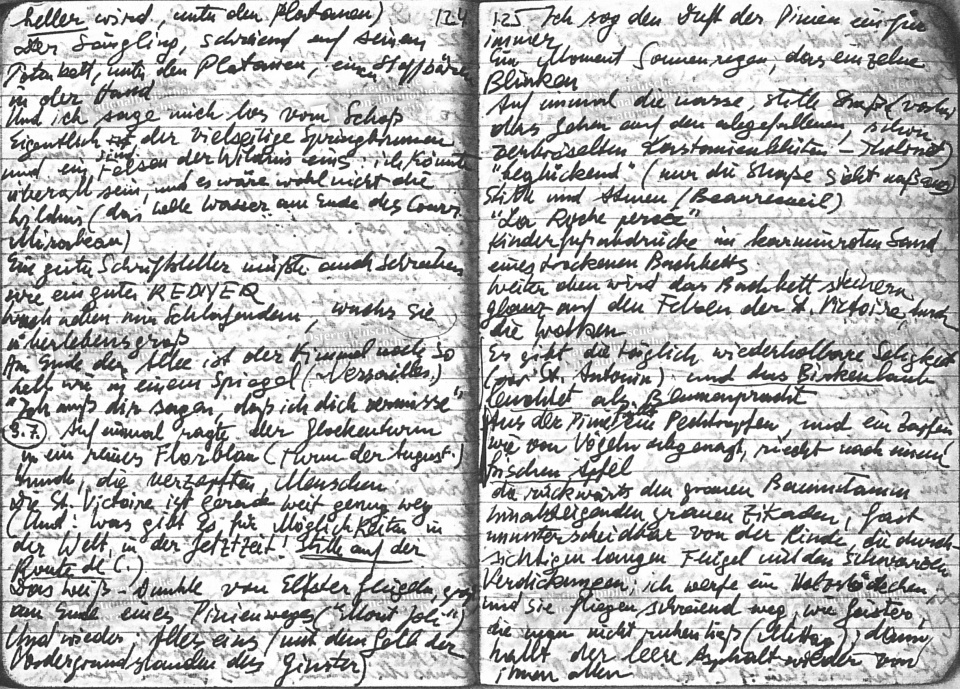 heller wird, unter den Platanen) 124
der Säugling, schreiend auf seinem
Totenbett, unter den Platanen, einen Stoffbären
in der Hand
Und ich sage mich los vom Schoß
Eigentlich ist der vielseitige Springbrunnen
und ein Felsen der Wildnis eins, ich könnte
überall sein, und es wäre wohl nicht die
Wildnis (das helle Wasser am Ende des Cours
Mirabeau)
Ein guter Schriftsteller müßte auch schreiben
wie ein guter REDNER
Wach neben mir Schlafendem, wachs Sie
überlebensgroß
Am Ende der Allee ist der Himmel noch so
hell wie in einem Spiegel (Versailles)
"Ich muß dir sagen, daß ich dich vermisse"
9.7. Auf einmal ragte der Glockenturm
in ein reines Florblau (Turm der August.)
Hunde, die verzerrten Menschen
Die St. Victoire ist gerade weit genug weg
(Und: Was gibt es für Möglichkeiten in
der Welt, in der Jetztzeit! Stille auf der
Route de C.)
Das Weiß-Dunkle von Elsterflügeln, groß
am Ende eines Pinienweges ("Mont joli")
Und wieder: Alles eins (mit dem Gelb der
Vordergrundstauden des Ginster)
125 Ich sog den Duft der Pinien ein für
immer
Ein Moment Sonnenregen, das einzelne
Blinken
Auf einmal die nasse, stille Straße (vorher
das Gehen auf den abgefallenen, schon
zerbröselten Kastanienblüten - Tholonet)
"Beglückend" (nur die Straße sieht naß aus)
Stille und Atmen (Beaurecueil)
"La Roche percée"
Kinderfußabdrücke im karminroten Sand
eines trockenen Bachbetts
Weiter oben wird das Bachbett steinern
glanz auf den Felsen der St. Victoire, durch
die Wolken
Es gibt die täglich wiederholbare Seligkeit
(vor St. Antonin) und das Birkenlaub
leuchtet als Blumenpracht
Aus der Pinie die Pechtropfen, und ein Zapfen
wie von Vögeln abgenagt, riecht nach einem
frischen Apfel
die rückwärts den grauen Baumstamm
hinabsteigenden grauen Zikaden, fast
ununterscheidbar von der Rinde, die durch-
sichtigen langen Flügel mit den schwarzen
Verdickungen, ich werfe ein Holzstöckchen,
und sie fliegen schreiend weg, wie Geister,
die man nicht ruhen ließ (Mittag); dann
hallt der leere Asphalt wieder von
ihnen allen